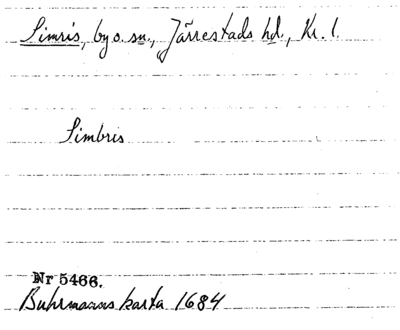 Simris, by o. sn., Järrestads hd., Kr. l.
Simbris
Nr 5466.
Buhrmanns karta 1684